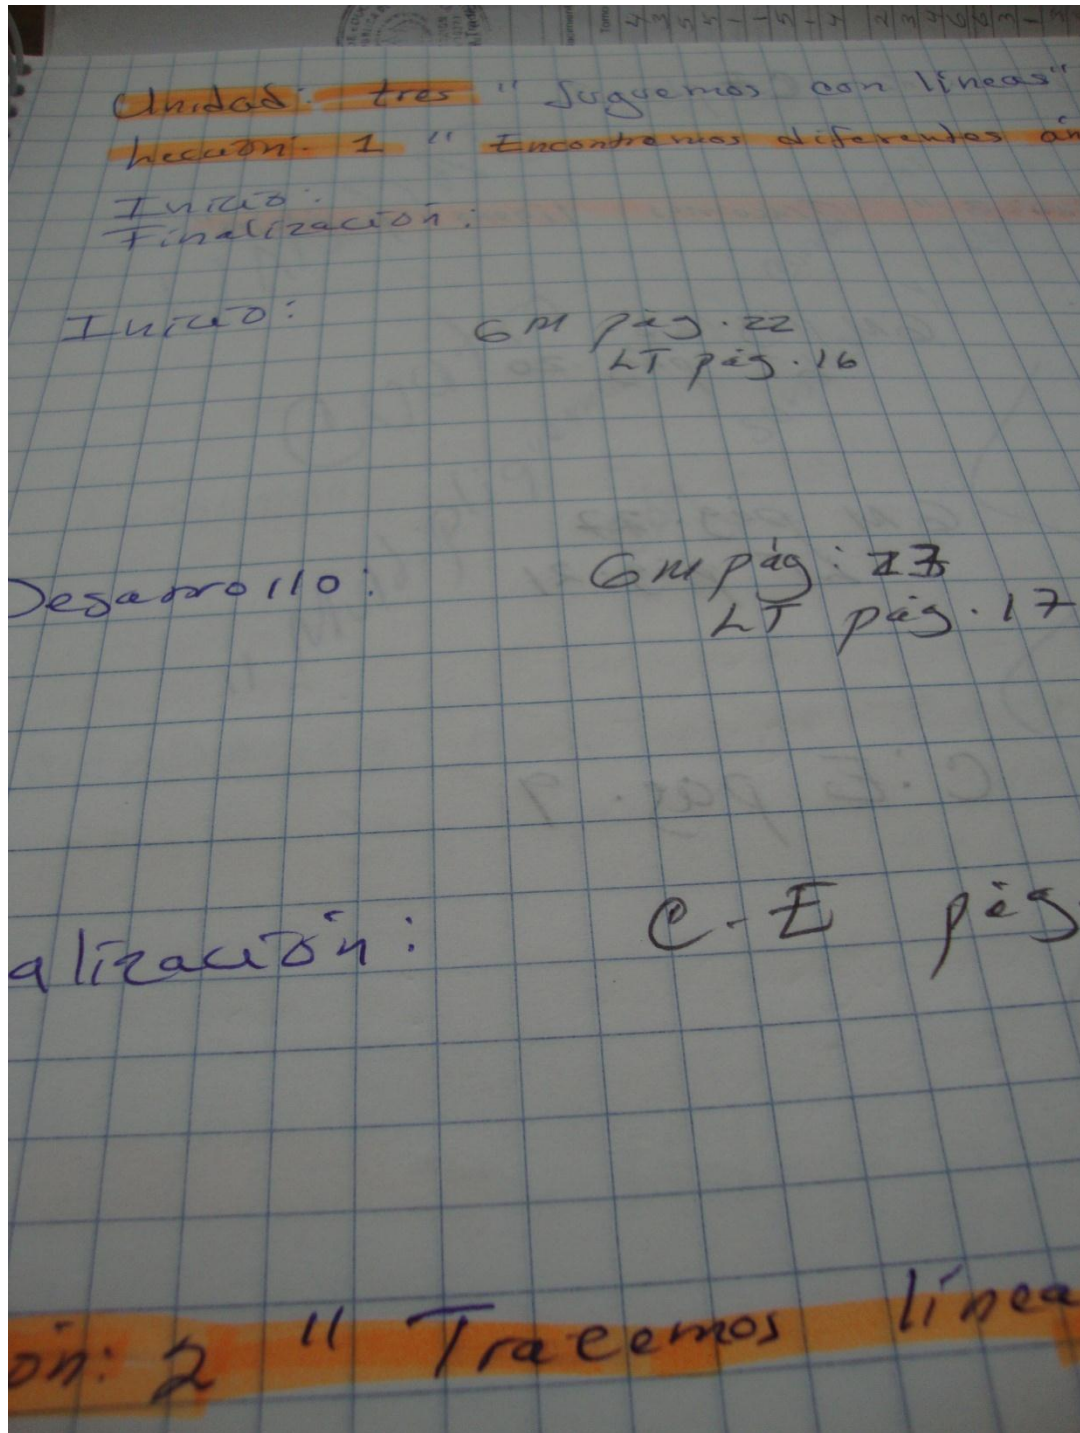 Unidad: tres " Juguemos con líneas"
Lección: 1 " Encontremos diferentes án
Inicio:
Finalización:
Inicio: GM pág. 22
LT pág. 16
Desarrollo: GM pág:
LT pág. 17
alización: C-E pág.
ón: 2 " Tracemos línea